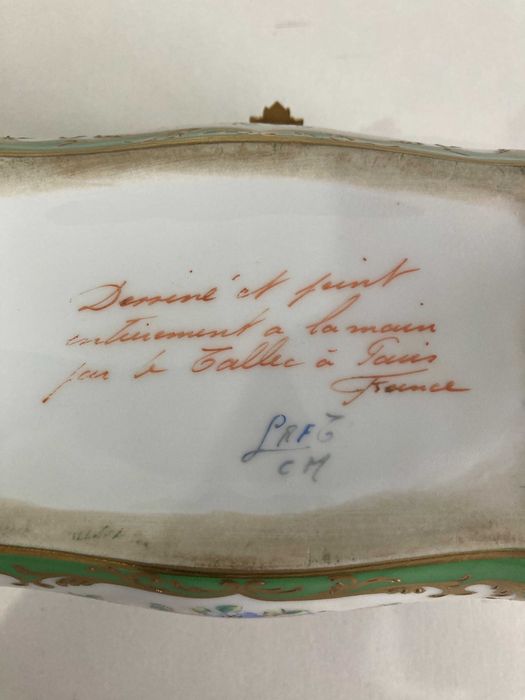 Dessiné et peint
entièrement a la main
par Le Tallec à Paris
France
LRFT
CM